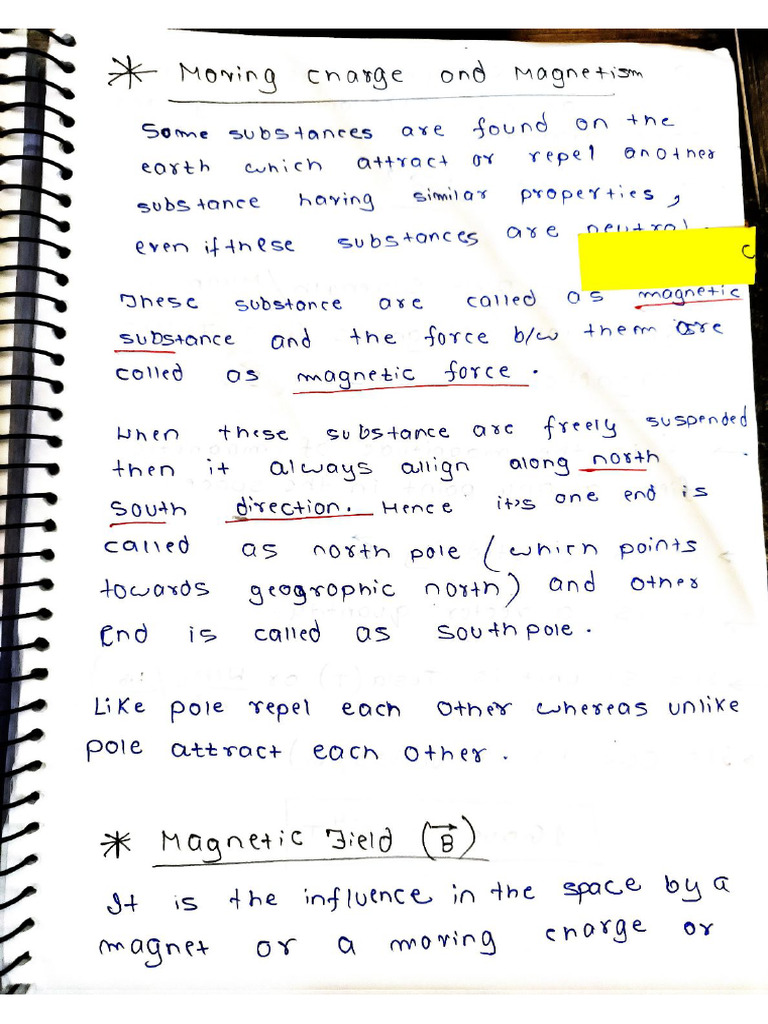 * Moving charge and Magnetism
Some substances are found on the
earth which attract or repel another
substance having similar properties,
even if these substances are neutral.
C
These substance are called as magnetic
substance and the force b/w them are
called as magnetic force.
When these substance are freely suspended
then it always allign along north
south direction. Hence it's one end is
called as north pole (which points
towards geographic north) and other
end is called as south pole.
Like pole repel each other whereas unlike
pole attract each other.
* Magnetic Field (B⃗)
It is the influence in the space by a
magnet or a moving charge or